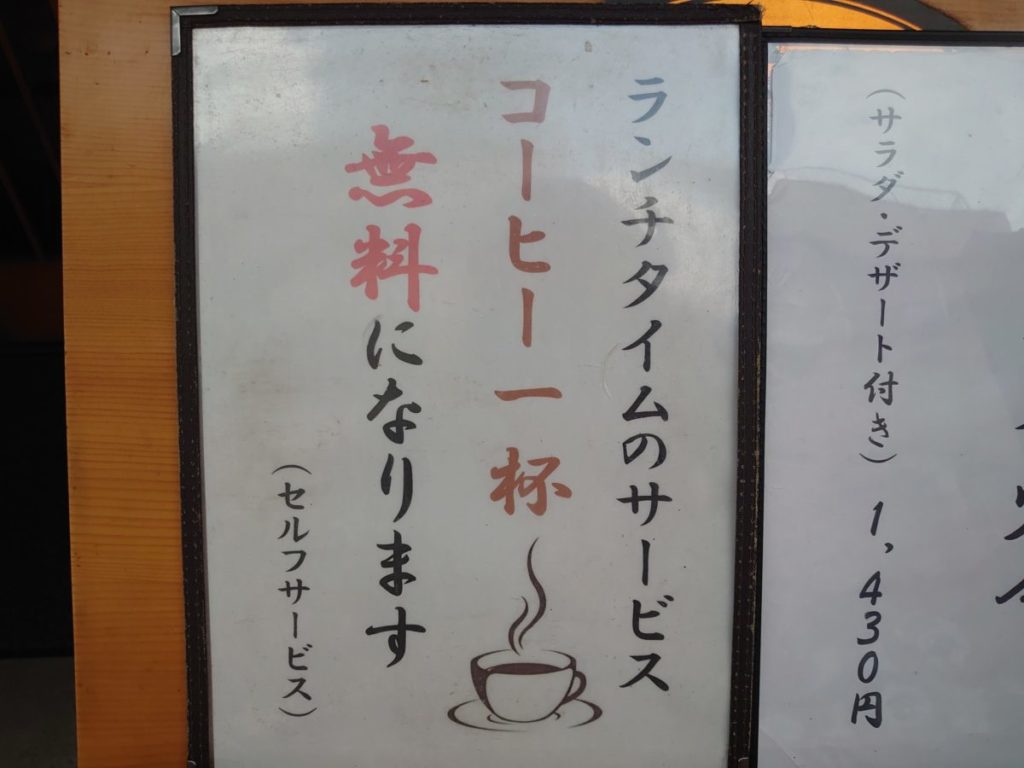 (サラダ・デザート付き) 1,430円
ランチタイムのサービス
コーヒー一杯
無料になります
(セルフサービス)